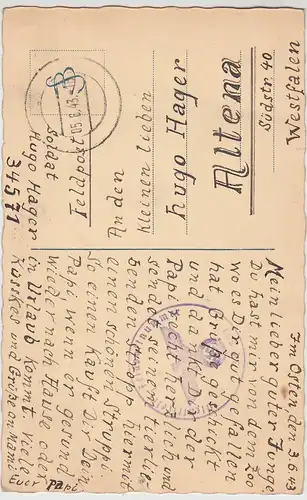 Im Osten den 3.6.43
Mein lieber guter Junge
Du hast mir von dem Zoo
wo es Dir gut gefallen
hat Grüsse geschickt
und da der
Papi recht herzlich und
sendet seinem tierlieb
enden hiermit
einen schönen Struppi
So einen kauft Dir Dein
Papi wenn er gesund
wieder nach Hause oder
in Urlaub kommt Viele
und Grüße an Mama
Euer Papi.
Soldat
Hugo Hager
34571
Feldpost
An den
kleinen lieben
Hugo Hager
Altena
Südstr. 40
Westfalen